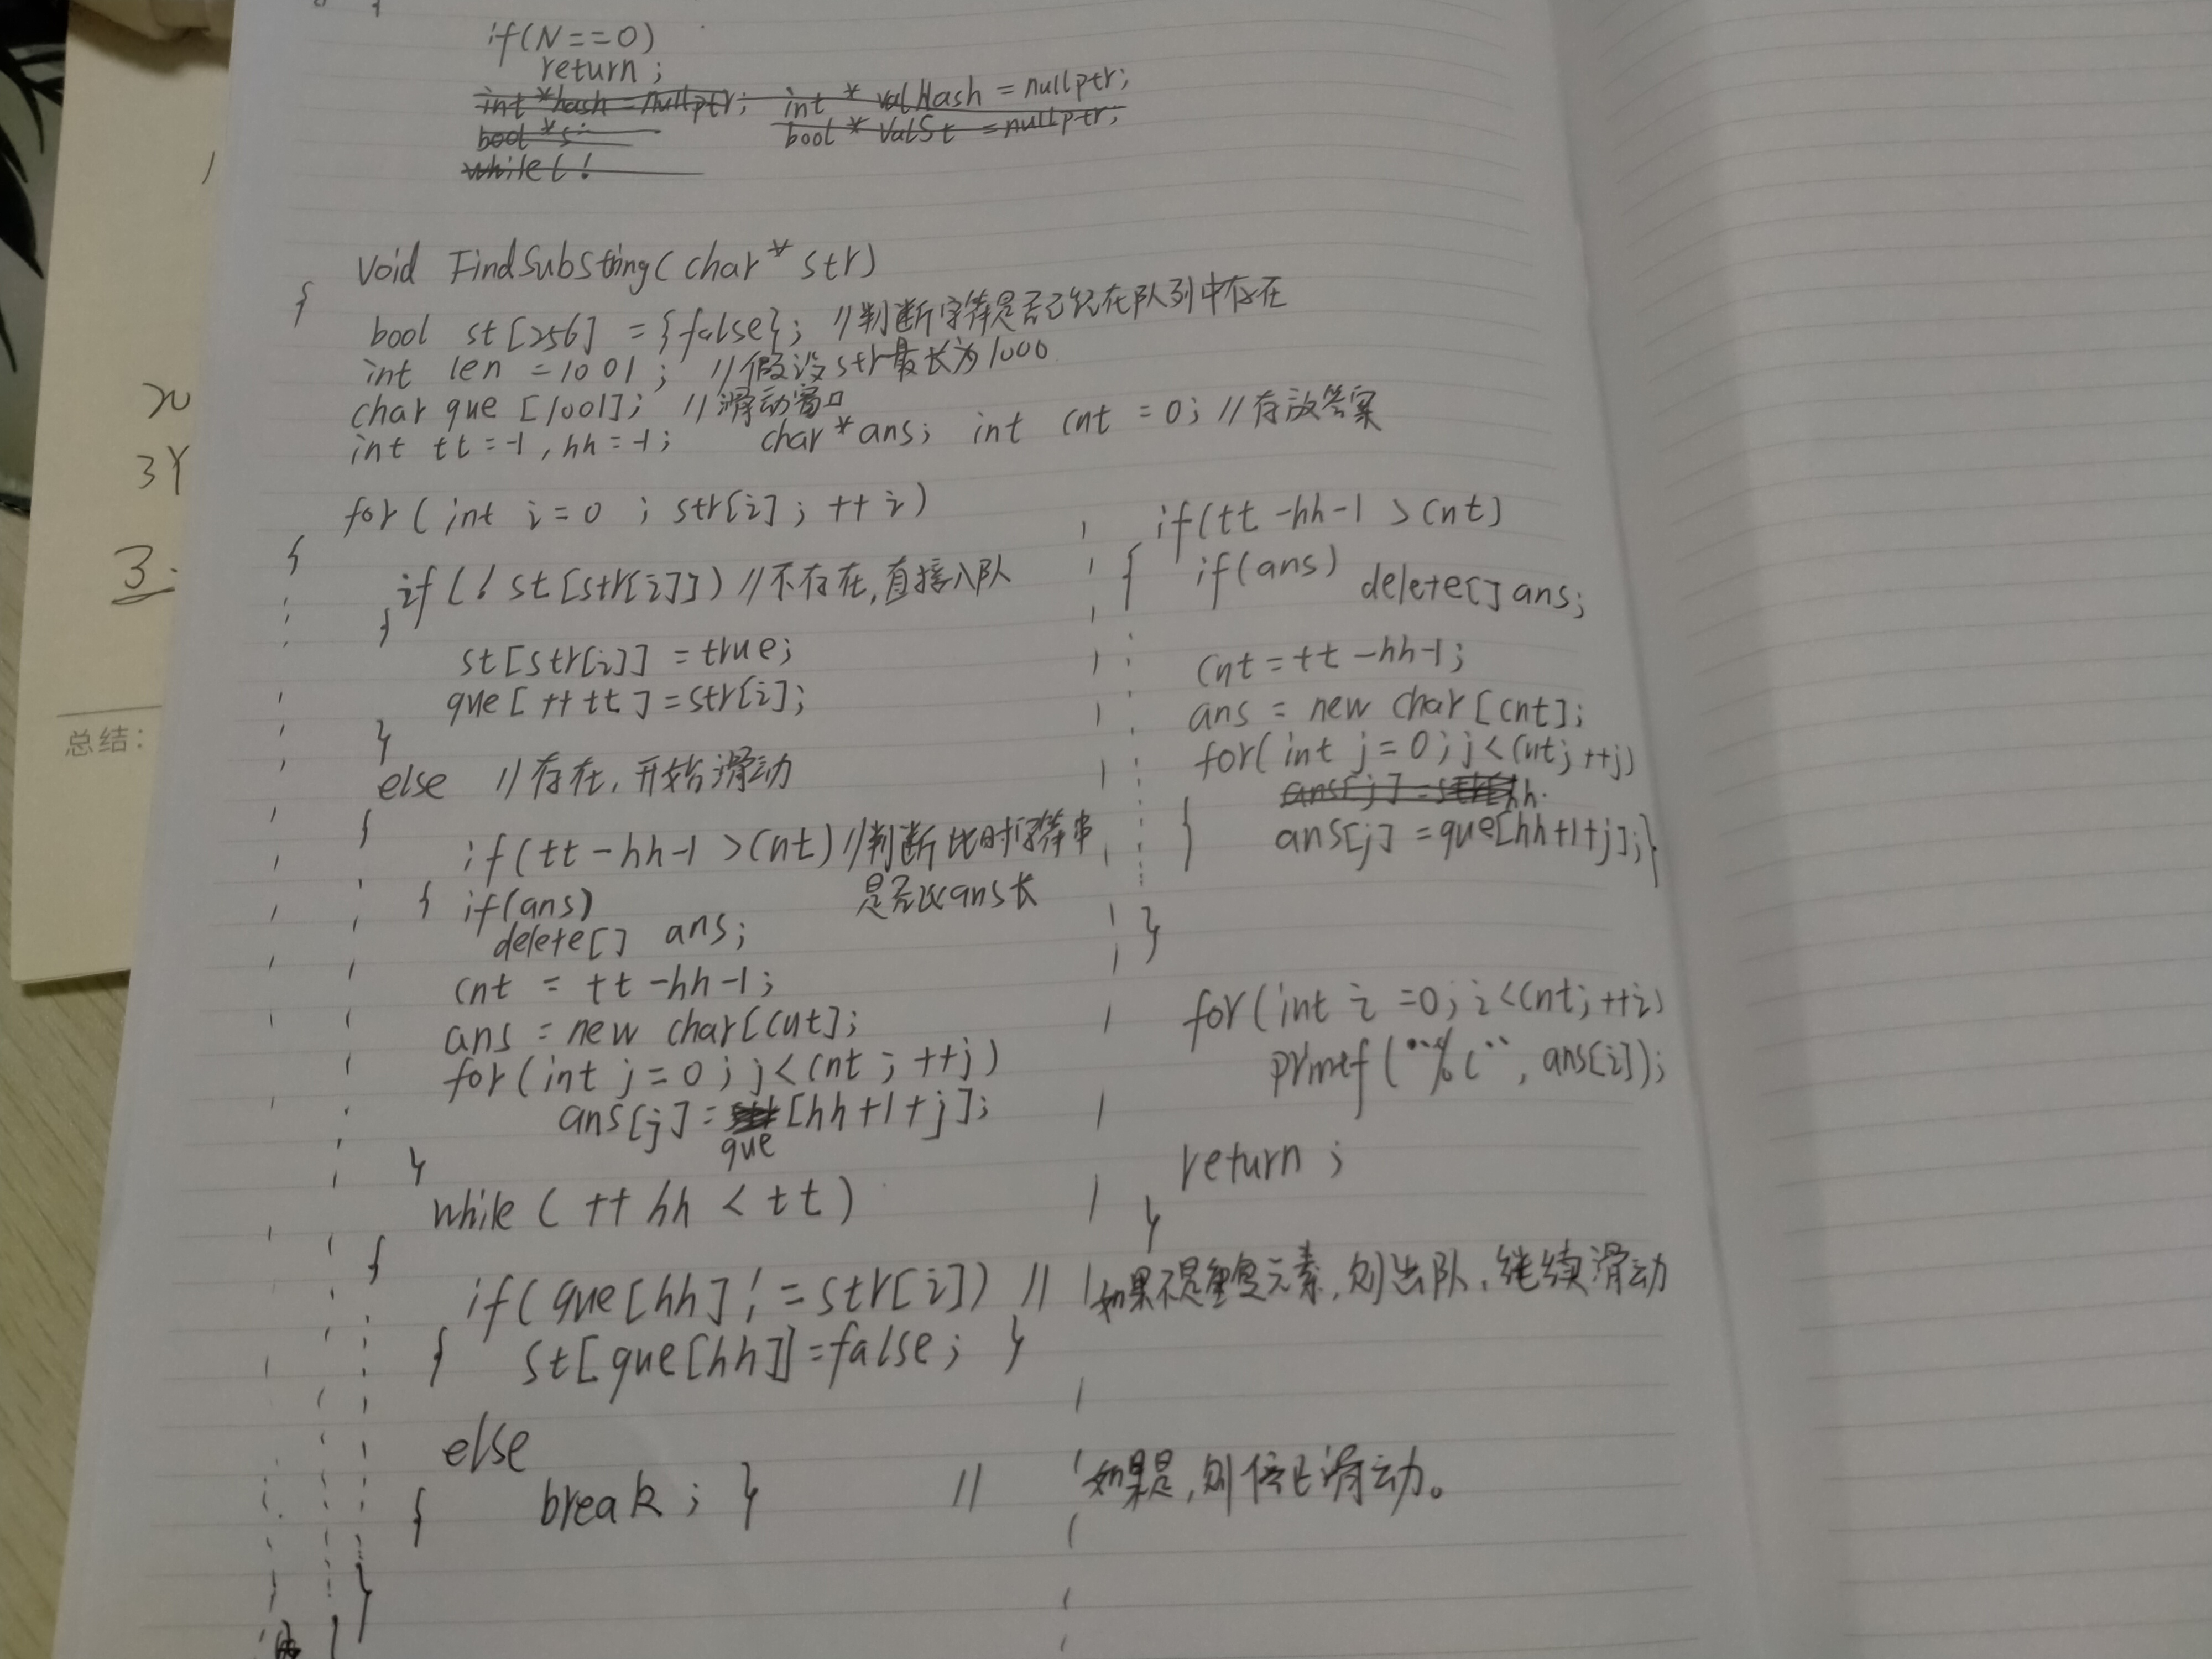 if(N==0)
return;
int *hash = nullptr; int * valHash = nullptr;
bool *s bool * valSt = nullptr;
while(!
void FindSubString(char* str)
{
bool st[256] = {false}; //判断字符是否已经在队列中存在
int len = 1001; //假设str最长为1000
char que [1001]; //滑动窗口
int tt=-1, hh=-1; char* ans; int cnt = 0; //存放答案
for(int i=0; str[i]; ++i)
{
if(! st[str[i]]) //不存在,直接入队
{
st[str[i]] = true;
que[++tt] = str[i];
}
else //存在,开始滑动
{
if(tt-hh-1 > cnt) //判断此时字符串
是否比ans长
{ if(ans)
delete[] ans;
cnt = tt-hh-1;
ans = new char[cnt];
for(int j=0; j<cnt; ++j)
ans[j] = que[hh+1+j];
}
while(++hh < tt)
{
if(que[hh] != str[i]) // 如果不是重复元素,则出队,继续滑动
{ st[que[hh]]=false; }
else
{ break; } // 如果是,则停止滑动。
}
if(tt-hh-1 > cnt)
{ if(ans) delete[] ans;
cnt = tt-hh-1;
ans = new char[cnt];
for(int j=0; j<cnt; ++j)
{ ans[j] = que[hh+1+j];}
}
for(int i=0; i<cnt; ++i)
printf("%c", ans[i]);
return;
}
总结:
3Y
3.